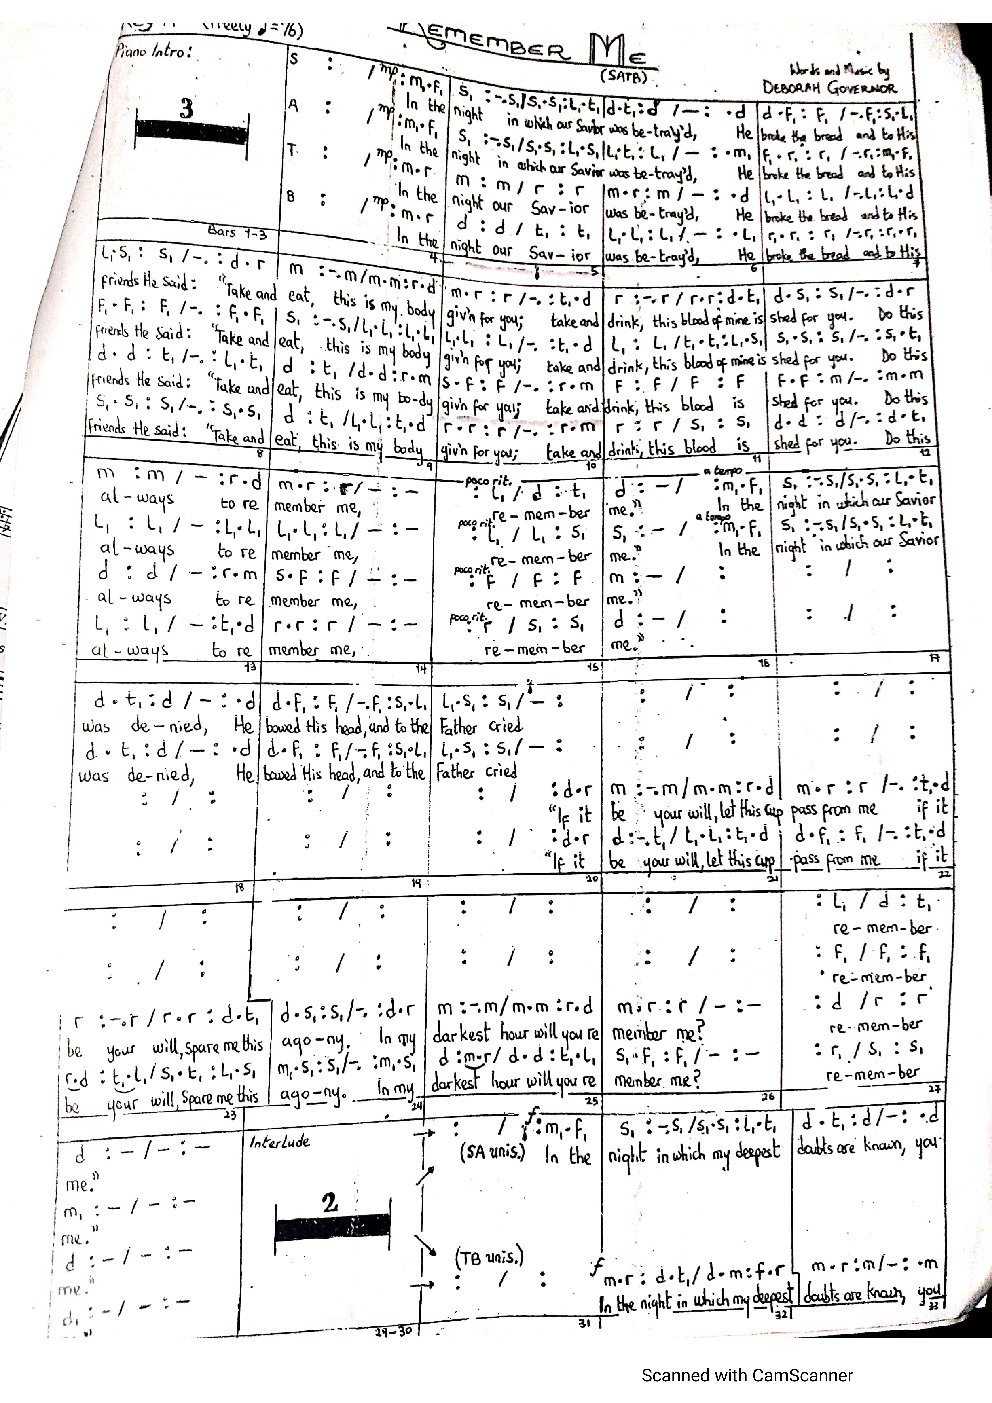 (Freely ♩=76)
REMEMBER ME
(SATB)
Words and Music by
DEBORAH GOVERNOR
Piano Intro:
3
Bars 1-3
S : / mp : m₁.f₁ | s₁ :-.s₁/s₁.s₁:l₁.t₁ | d.t₁:d /—: .d | d.f₁: f₁ /-.f₁:s₁.l₁
In the | night in which our Savior | was be-tray'd, He | broke the bread and to His
A : / mp : m₁.f₁ | s₁ :-.s₁/s₁.s₁:l₁.s₁ | l₁.t₁:l₁ /—: .m₁ | f₁.r₁: r₁ /-.r₁:m₁.f₁
In the | night in which our Savior | was be-tray'd, He | broke the bread and to His
T : / mp : m.r | m : m / r : r | m.r : m /—: .d | l₁.l₁ : l₁ /-.l₁:l₁.d
In the | night our Sav-ior | was be-tray'd, He | broke the bread and to His
B : / mp : m.r | d : d / t₁ : t₁ | l₁.l₁ : l₁ /—: .l₁ | r₁.r₁ : r₁ /-.r₁:r₁.r₁
In the | night our Sav-ior | was be-tray'd, He | broke the bread and to His
4 5 6 7
l₁.s₁ : s₁ /-. : d.r | m :-.m/m.m:r.d | m.r : r /-. : t₁.d | r :-.r / r.r:d.t₁ | d.s₁ : s₁ /-. : d.r
friends He said: "Take and | eat, this is my body | giv'n for you; take and | drink, this blood of mine is | shed for you. Do this
f₁.f₁ : f₁ /-. : f₁.f₁ | s₁ :-.s₁/l₁.l₁:l₁.l₁ | l₁.l₁ : l₁ /-. : t₁.d | l₁ : l₁ /t₁.t₁:l₁.s₁ | s₁.s₁ : s₁ /-. : s₁.t₁
friends He said: "Take and | eat, this is my body | giv'n for you; take and | drink, this blood of mine is | shed for you. Do this
d.d : t₁ /-. : l₁.t₁ | d : t₁ /d.d:r.m | s.f : f /-. : r.m | f : f / f : f | f.f : m /-. : m.m
friends He said: "Take and | eat, this is my bo-dy | giv'n for you; take and | drink, this blood is | shed for you. Do this
s₁.s₁ : s₁ /-. : s₁.s₁ | d : t₁ /l₁.l₁:t₁.d | r.r : r /-. : r.m | r : r / s₁ : s₁ | d.d : d /-. : d.t₁
friends He said: "Take and | eat, this is my body | giv'n for you; take and | drink, this blood is | shed for you. Do this
8 9 10 11 12
m : m / — : r.d | m.r : r / — : — | poco rit. : l₁ / d : t₁ | d : — / a tempo : m₁.f₁ | s₁ :-.s₁/s₁.s₁:l₁.t₁
al-ways to re | member me, | re-mem-ber | me." In the | night in which our Savior
l₁ : l₁ / — : l₁.l₁ | l₁.l₁ : l₁ / — : — | poco rit. : l₁ / l₁ : s₁ | s₁ : — / a tempo : m₁.f₁ | s₁ :-.s₁/s₁.s₁:l₁.t₁
al-ways to re | member me, | re-mem-ber | me." In the | night in which our Savior
d : d / — : r.m | s.f : f / — : — | poco rit. : f / f : f | m : — / : | : / :
al-ways to re | member me, | re-mem-ber | me."
l₁ : l₁ / — : t₁.d | r.r : r / — : — | poco rit. : r / s₁ : s₁ | d : — / : | : / :
al-ways to re | member me, | re-mem-ber | me."
13 14 15 16 17
d.t₁ : d / — : .d | d.f₁ : f₁ /-.f₁:s₁.l₁ | l₁.s₁ : s₁ / — : | : / : | : / :
was de-nied, He | bowed His head, and to the | Father cried
d.t₁ : d / — : .d | d.f₁ : f₁ /-.f₁:s₁.l₁ | l₁.s₁ : s₁ / — : | : / : | : / :
was de-nied, He | bowed His head, and to the | Father cried
: / : | : / : | : / : d.r | m :-.m/m.m:r.d | m.r : r /-. : t₁.d
"If it | be your will, let this cup | pass from me if it
: / : | : / : | : / : d.r | d :-.t₁/t₁.l₁:t₁.d | d.f₁ : f₁ /-. : t₁.d
"If it | be your will, let this cup | pass from me if it
18 19 20 21 22
: / : | : / : | : / : | : / : | : l₁ / d : t₁
re-mem-ber
: / : | : / : | : / : | : / : | : f₁ / f₁ : f₁
re-mem-ber
r :-.r / r.r : d.t₁ | d.s₁ : s₁ /-. : d.r | m :-.m/m.m : r.d | m.r : r / — : — | : d / r : r
be your will, spare me this | ago-ny. In my | darkest hour will you re | member me? | re-mem-ber
r.d : t₁.l₁/s₁.t₁ : l₁.s₁ | m₁.s₁ : s₁/-. : m₁.s₁ | d : m.r/ d.d : t₁.l₁ | s₁.f₁ : f₁/ — : — | : r₁ / s₁ : s₁
be your will, spare me this | ago-ny. In my | darkest hour will you re | member me? | re-mem-ber
23 24 25 26 27
d : — / — : — | Interlude | : / f : m₁.f₁ | s₁ :-.s₁/s₁.s₁:l₁.t₁ | d.t₁ : d / — : .d
me." | (SA unis.) In the | night in which my deepest | doubts are known, you
m₁ : — / — : —
me."
2
d : — / — : —
me."
(TB unis.)
d₁ : — / — : — | : / : | f m.r : d.t₁/d.m:f.r | m.r : m / — : .m
In the night in which my deepest | doubts are known, you
29-30 31 32 33
Scanned with CamScanner